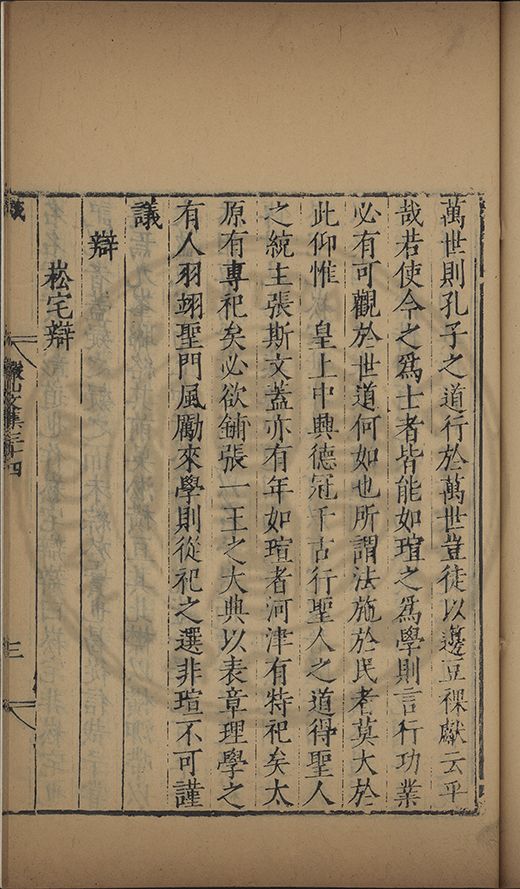 萬世則孔子之道行於萬世豈徒以籩豆祼獻云乎
哉若使今之爲士者皆能如瑄之爲學則言行功業
必有可觀於世道何如也所謂法施於民者莫大於
此仰惟　皇上中興德冠千古行聖人之道得聖人
之統主張斯文蓋亦有年如瑄者河津有特祀矣太
原有專祀矣必欲鋪張一王之大典以表章理學之
有人羽翊聖門風勵來學則從祀之選非瑄不可謹
議
辯
崧宅辯
山文集三十四
三